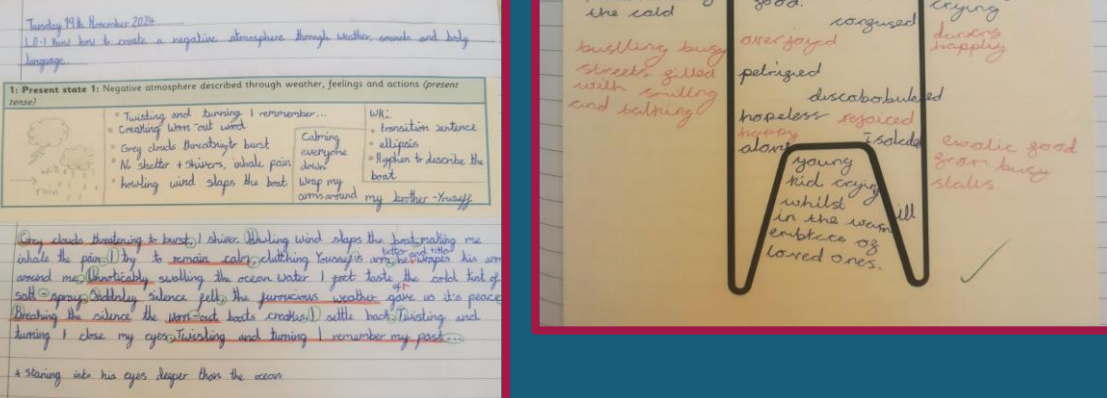 Tuesday 19th November 2024
L.O-I know how to create a negative atmosphere through weather, sounds and body
language.
1: Present state 1: Negative atmosphere described through weather, feelings and actions (present
tense)
Twisting and turning I remmember...
Creaking worn-out wood
Grey clouds threatnigto burst
No shelter + shivers, inhale pain
howling wind slaps the boat
rain
Calming
everyone
down
Wrap my
arms around my brother - Youseff
transition sentence
ellipsis
Hyphen to describe the
boat
Grey clouds threatening to burst, I shiver. Howling wind slaps the boat making me
inhale the pain. I try to remain calm, clutching
around me. Unnoticably swalling the ocean water I goet taste the cold tint of
salt - spray. Suddnley silence fell, the furrocious weather gave us it's peace
of
Breaking the silence the worn-out boats creakes. I settle back. Twisting and
turning I close my eyes, Twisting and turning I remember my past...
* Staring into his eyes deeper than the ocean
the cold
bustling busy
streets filled
with smiling
and
good.
overjoyed
confused
petrified
discobobulated
hopeless rejoiced
happy
alone
isolated
crying
dancing
happily
exotic food
from busy
stalls.
young
kid crying
whilst ill
in the warm
embrace of
loved ones.